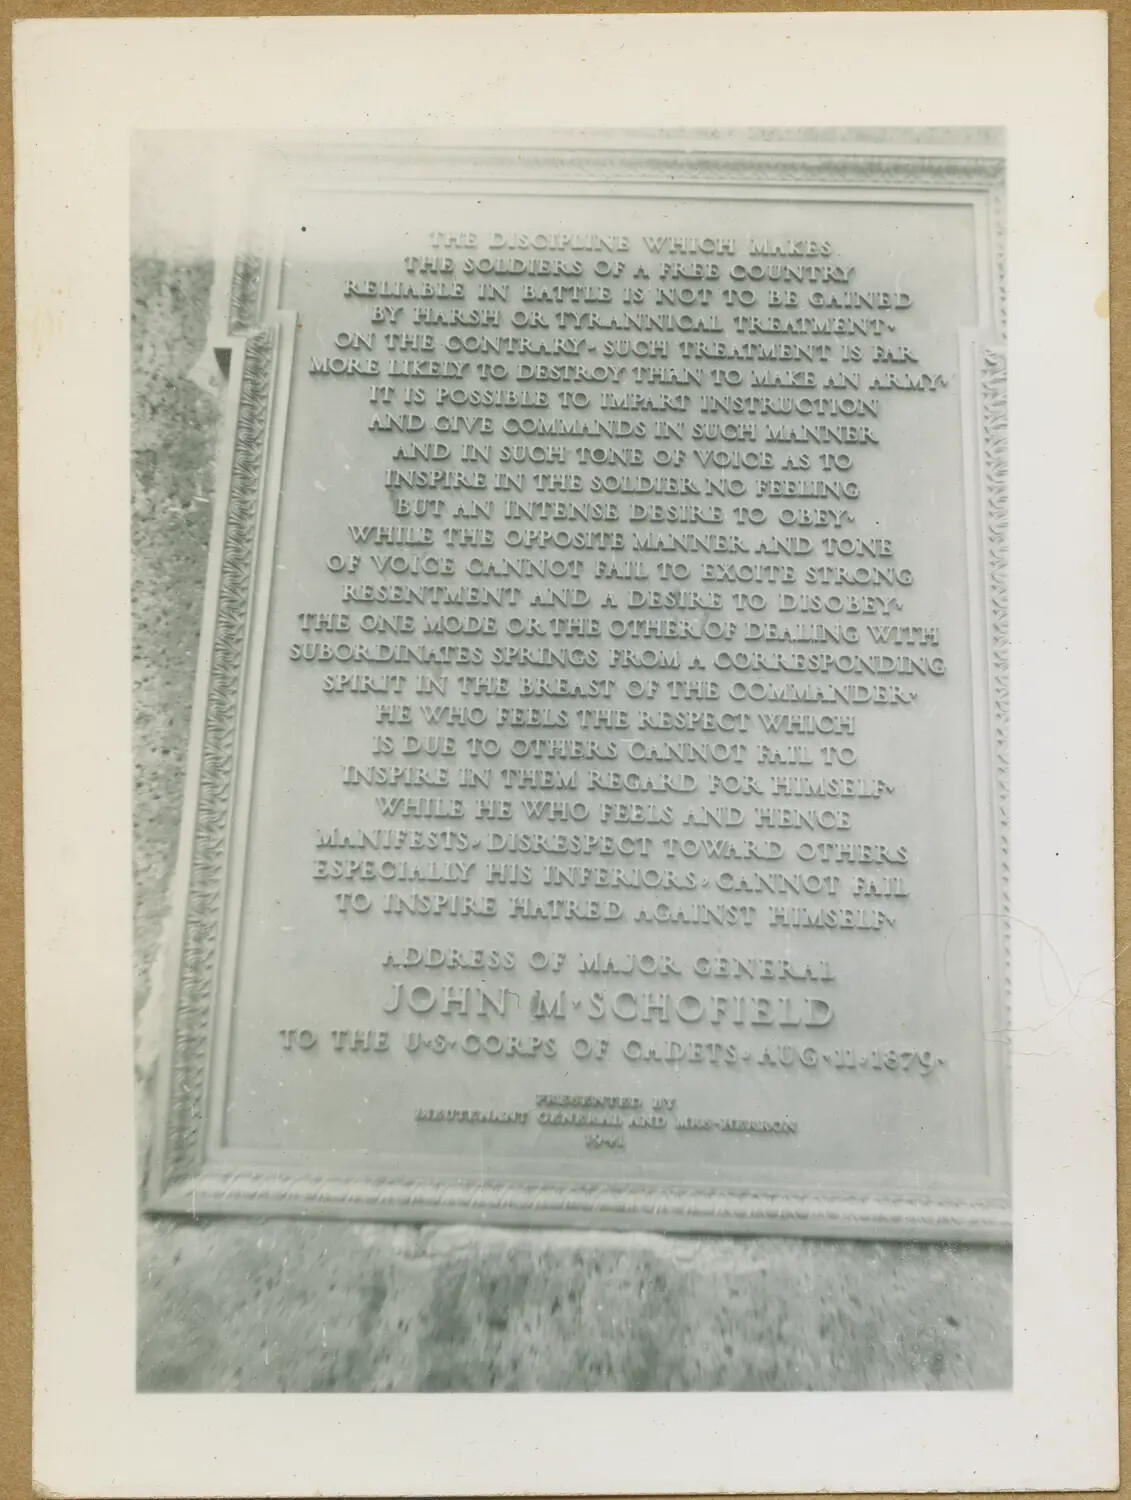 THE DISCIPLINE WHICH MAKES
THE SOLDIERS OF A FREE COUNTRY
RELIABLE IN BATTLE IS NOT TO BE GAINED
BY HARSH OR TYRANNICAL TREATMENT·
ON THE CONTRARY, SUCH TREATMENT IS FAR
MORE LIKELY TO DESTROY THAN TO MAKE AN ARMY·
IT IS POSSIBLE TO IMPART INSTRUCTION
AND GIVE COMMANDS IN SUCH MANNER
AND IN SUCH TONE OF VOICE AS TO
INSPIRE IN THE SOLDIER NO FEELING
BUT AN INTENSE DESIRE TO OBEY·
WHILE THE OPPOSITE MANNER AND TONE
OF VOICE CANNOT FAIL TO EXCITE STRONG
RESENTMENT AND A DESIRE TO DISOBEY·
THE ONE MODE OR THE OTHER OF DEALING WITH
SUBORDINATES SPRINGS FROM A CORRESPONDING
SPIRIT IN THE BREAST OF THE COMMANDER·
HE WHO FEELS THE RESPECT WHICH
IS DUE TO OTHERS CANNOT FAIL TO
INSPIRE IN THEM REGARD FOR HIMSELF·
WHILE HE WHO FEELS AND HENCE
MANIFESTS, DISRESPECT TOWARD OTHERS
ESPECIALLY HIS INFERIORS, CANNOT FAIL
TO INSPIRE HATRED AGAINST HIMSELF·
ADDRESS OF MAJOR GENERAL
JOHN M·SCHOFIELD
TO THE U·S·CORPS OF CADETS, AUG·11,1879·
PRESENTED BY
LIEUTENANT GENERAL AND MRS·HERRON
1941